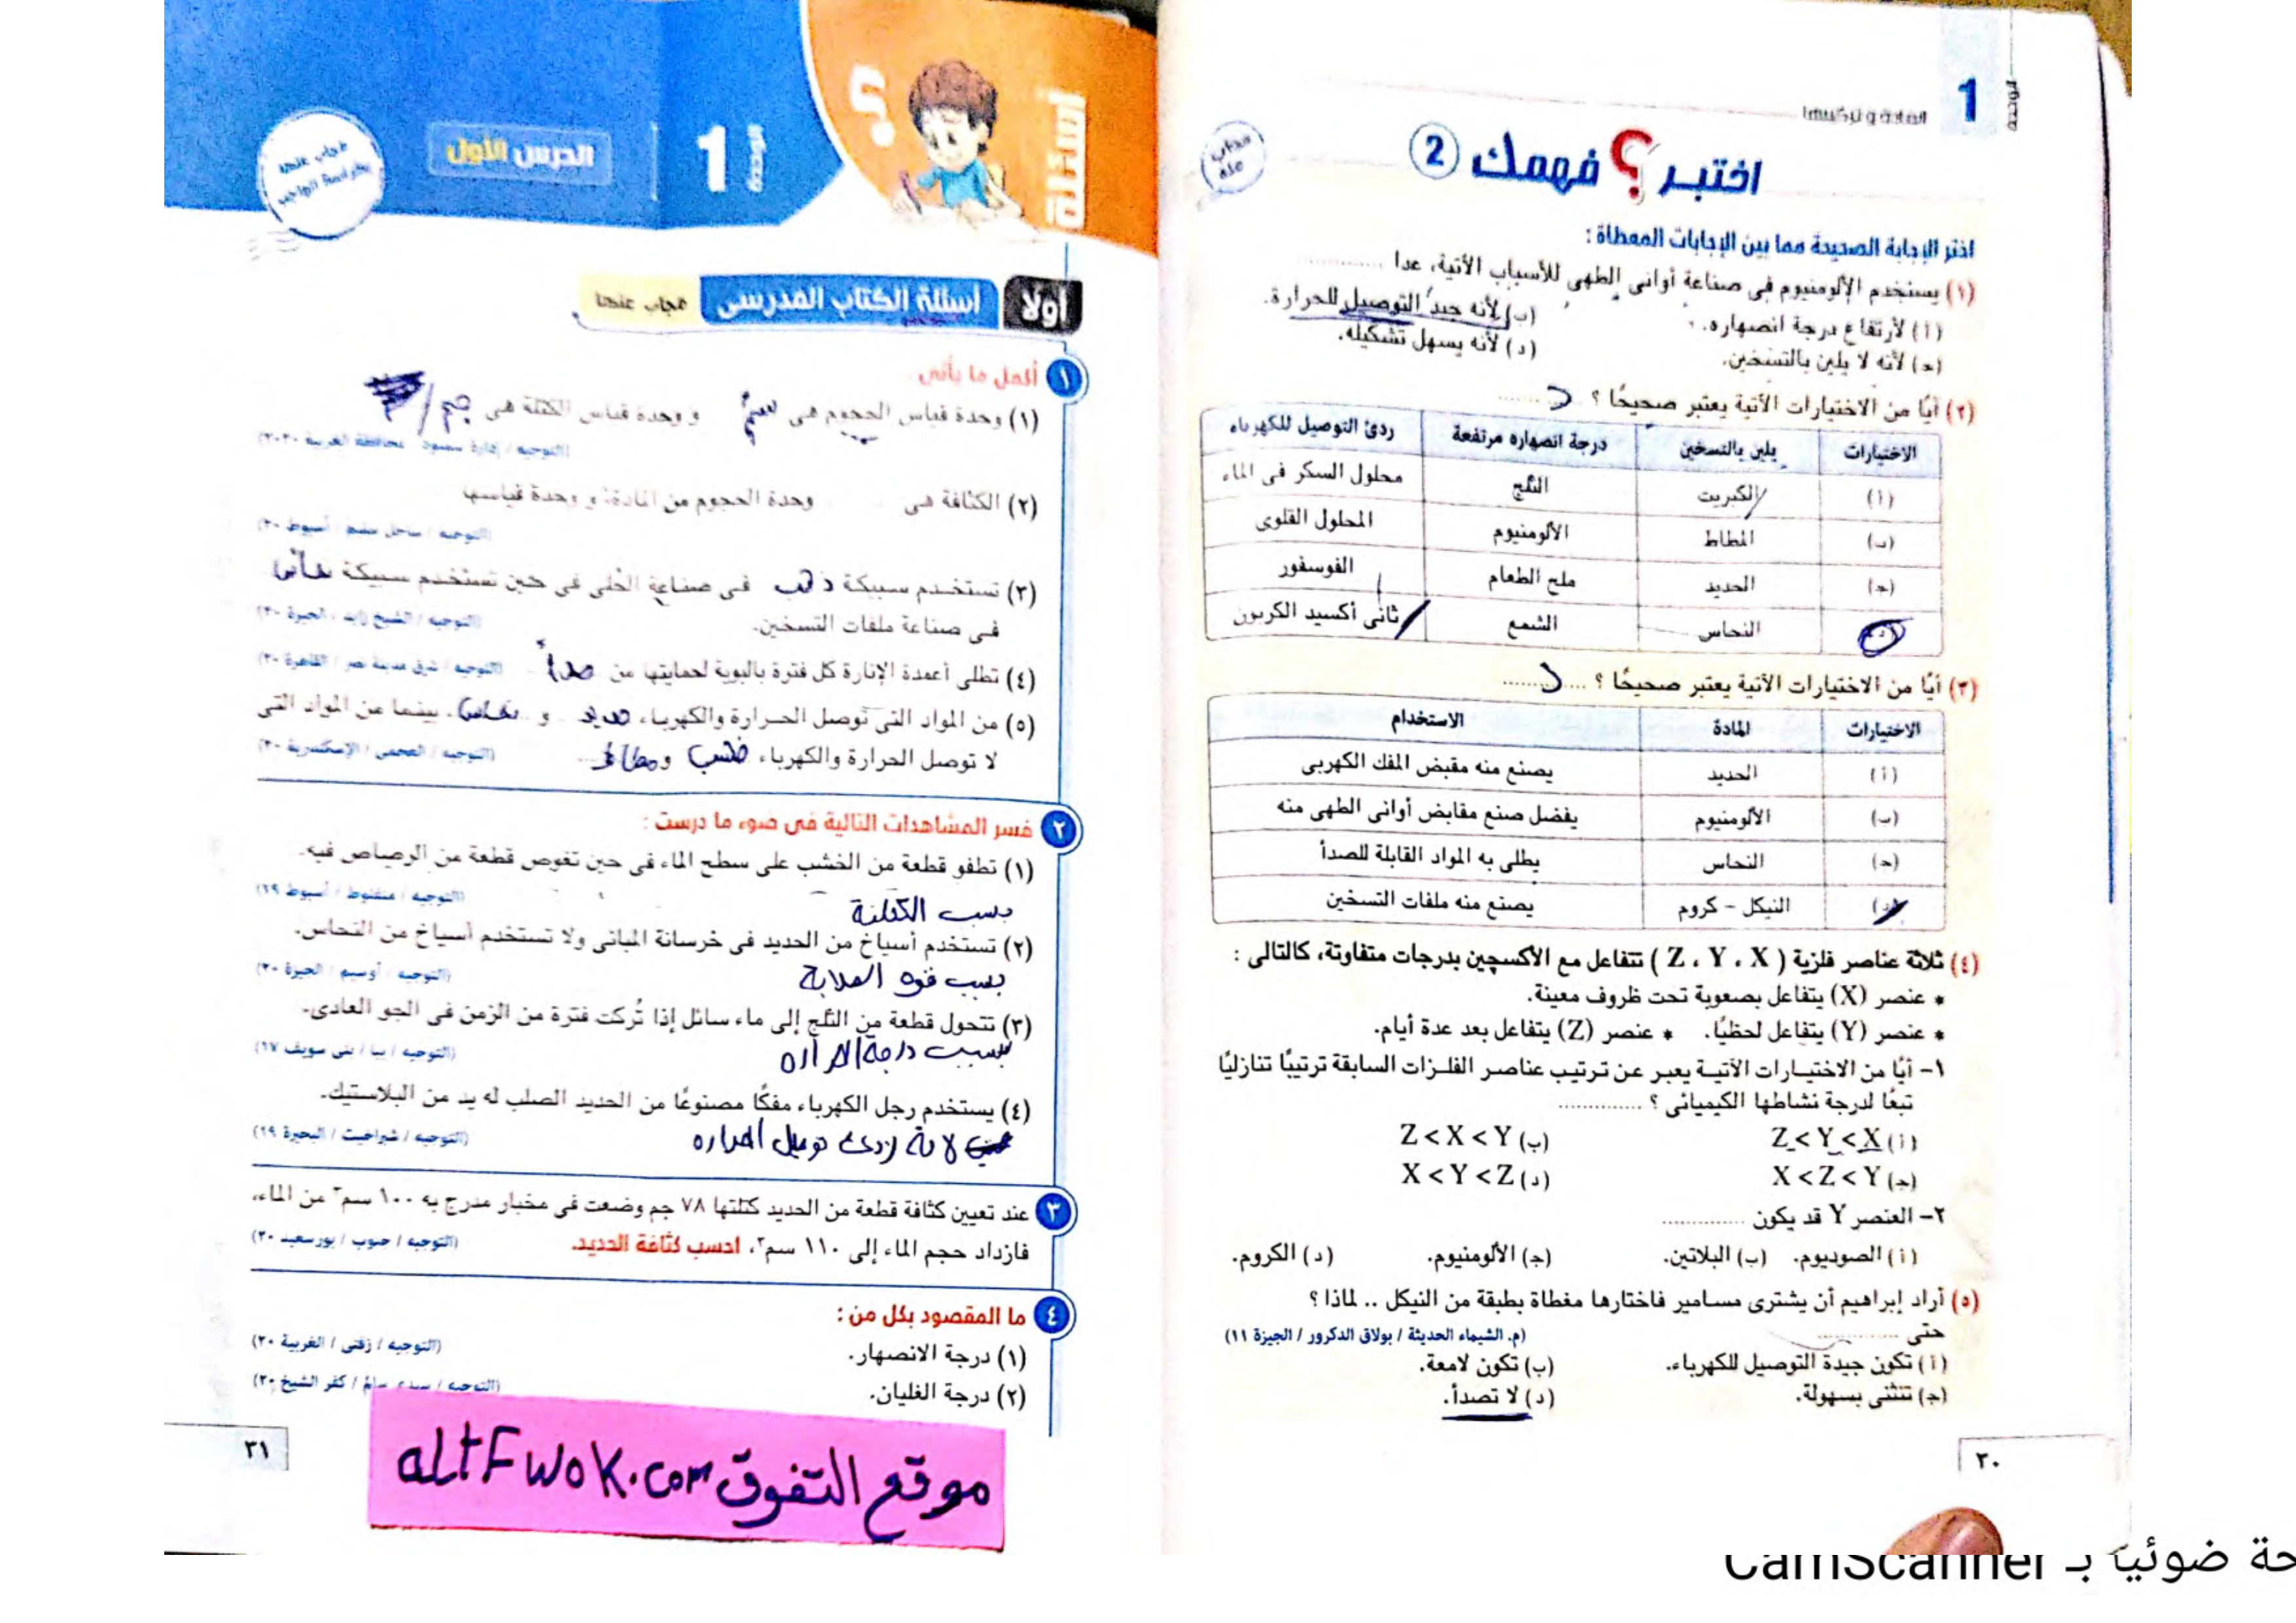 1
الوحدة
المادة و تركيبها
اختبر ؟ فهمك 2
مجاب عنه
اختر الإجابة الصحيحة مما بين الإجابات المعطاة :
(١) يستخدم الألومنيوم فى صناعة أوانى الطهى للأسباب الآتية، عدا ............
(أ) لارتفاع درجة انصهاره. (ب) لأنه جيد التوصيل للحرارة.
(ج) لأنه لا يلين بالتسخين. (د) لأنه يسهل تشكيله.
(٢) أيًا من الاختيارات الآتية يعتبر صحيحًا ؟ د
الاختيارات يلين بالتسخين درجة انصهاره مرتفعة ردئ التوصيل للكهرباء
(أ) الكبريت الثلج محلول السكر فى الماء
(ب) المطاط الألومنيوم المحلول القلوى
(ج) الحديد ملح الطعام الفوسفور
(د) النحاس الشمع ثانى أكسيد الكربون
(٣) أيًا من الاختيارات الآتية يعتبر صحيحًا ؟ ....د....
الاختيارات المادة الاستخدام
(أ) الحديد يصنع منه مقبض المفك الكهربى
(ب) الألومنيوم يفضل صنع مقابض أوانى الطهى منه
(ج) النحاس يطلى به المواد القابلة للصدأ
(د) النيكل - كروم يصنع منه ملفات التسخين
(٤) ثلاثة عناصر فلزية ( Z ، Y ، X ) تتفاعل مع الأكسجين بدرجات متفاوتة، كالتالى :
* عنصر (X) يتفاعل بصعوبة تحت ظروف معينة.
* عنصر (Y) يتفاعل لحظيًا. * عنصر (Z) يتفاعل بعد عدة أيام.
١- أيًا من الاختيارات الآتية يعبر عن ترتيب عناصر الفلزات السابقة ترتيبًا تنازليًا
تبعًا لدرجة نشاطها الكيميائى ؟ ............
(أ) Z < Y < X (ب) Z < X < Y
(ج) X < Z < Y (د) X < Y < Z
٢- العنصر Y قد يكون ............
(أ) الصوديوم. (ب) البلاتين. (ج) الألومنيوم. (د) الكروم.
(٥) أراد إبراهيم أن يشترى مسامير فاختارها مغطاة بطبقة من النيكل .. لماذا ؟
حتى ............ (م. الشيماء الحديثة / بولاق الدكرور / الجيزة ١١)
(أ) تكون جيدة التوصيل للكهرباء. (ب) تكون لامعة.
(ج) تنثنى بسهولة. (د) لا تصدأ.
٣٠
أسئلة
؟
الوحدة 1
الدرس الأول
مجاب عنها
أولًا أسئلة الكتاب المدرسى مجاب عنها
١ أكمل ما يأتى
(١) وحدة قياس الحجوم هى سم٣ و وحدة قياس الكتلة هى جم
(٢) الكثافة هى وحدة الحجوم من المادة، و وحدة قياسها
(٣) تستخدم سبيكة ذهب فى صناعة الحلى فى حين تستخدم سبيكة نحاس
(التوجيه / الشيخ زايد / الجيزة ٢٠)
فى صناعة ملفات التسخين.
(٤) تطلى أعمدة الإنارة كل فترة بالبوية لحمايتها من صدأ (التوجيه / شرق مدينة نصر / القاهرة ٢٠)
(٥) من المواد التى توصل الحرارة والكهرباء حديد و نحاس، بينما من المواد التى
لا توصل الحرارة والكهرباء خشب و مطاط (التوجيه / العجمى / الإسكندرية ٢٠)
٢ فسر المشاهدات التالية فى ضوء ما درست :
(١) تطفو قطعة من الخشب على سطح الماء فى حين تغوص قطعة من الرصاص فيه.
(التوجيه / منفلوط / أسيوط ١٩)
(٢) تستخدم أسياخ من الحديد فى خرسانة المبانى ولا تستخدم أسياخ من النحاس.
بسبب قوه الصلابة (التوجيه / أوسيم / الجيزة ٢٠)
(٣) تتحول قطعة من الثلج إلى ماء سائل إذا تُركت فترة من الزمن فى الجو العادى.
بسبب درجة الحراره (التوجيه / ببا / بنى سويف ١٧)
(٤) يستخدم رجل الكهرباء مفكًا مصنوعًا من الحديد الصلب له يد من البلاستيك.
لانة ردئ توصيل الحراره (التوجيه / شبراخيت / البحيرة ١٩)
٣ عند تعيين كثافة قطعة من الحديد كتلتها ٧٨ جم وضعت فى مخبار مدرج به ١٠٠ سم٣ من الماء،
فازداد حجم الماء إلى ١١٠ سم٣، احسب كثافة الحديد. (التوجيه / جنوب / بورسعيد ٢٠)
٤ ما المقصود بكل من :
(١) درجة الانصهار. (التوجيه / زفتى / الغربية ٢٠)
(٢) درجة الغليان. (التوجيه / سيدى سالم / كفر الشيخ ٢٠)
موقع التفوق altFwok.com
٣١
حة ضوئيا بـ CamScanner